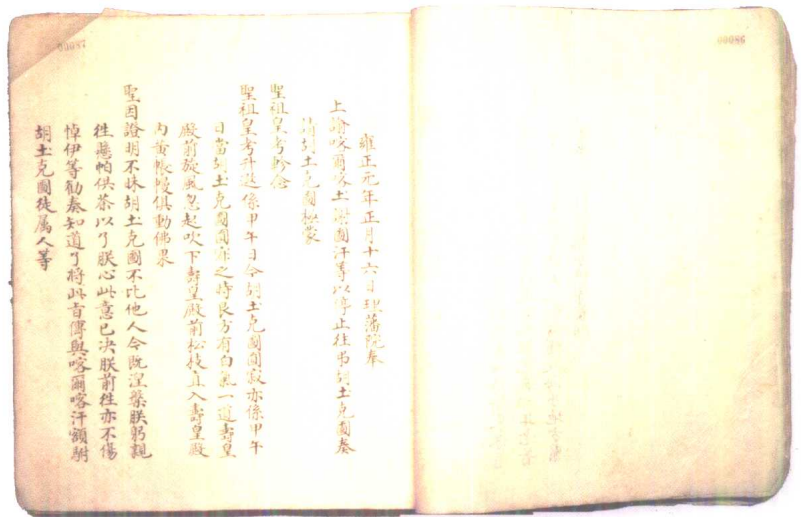 雍正元年正月十六日理藩院奉
上諭喀爾喀土謝圖汗等以停止往弔胡土克圖奏
胡土克圖極蒙
聖祖皇考軫念
聖祖皇考升遐係甲午日今胡土克圖圓寂亦係甲午
日當胡土克圖圓寂之時良方有白氣一道壽皇
殿前旋風忽起吹下壽皇殿前松枝直入壽皇殿
內黃帳幔俱動佛果
聖因證明不昧胡土克圖不比他人今既涅槃朕躬親
徃懸帕供茶以了朕心此意已決朕前徃亦不傷
悼伊等勸奏知道了將此旨傳與喀爾喀汗額駙
胡土克圖徒属人等
00087
00086